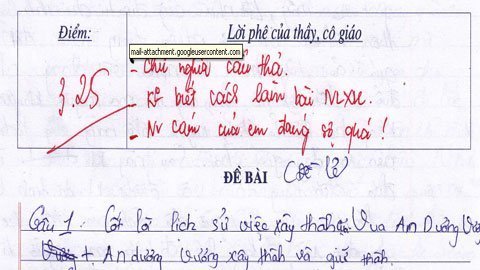 Điểm:
Lời phê của thầy, cô giáo
mail-attachment.googleusercontent.com
3.25
- Chữ nghĩa cẩu thả.
- Ko biết cách làm bài NLXH.
- NV cảm của em đáng sợ quá!
ĐỀ BÀI
Câu 1: Cốt lõi lịch sử việc xây thành Vua An Dương Vương
+ An dương vương xây thành và giữ thành